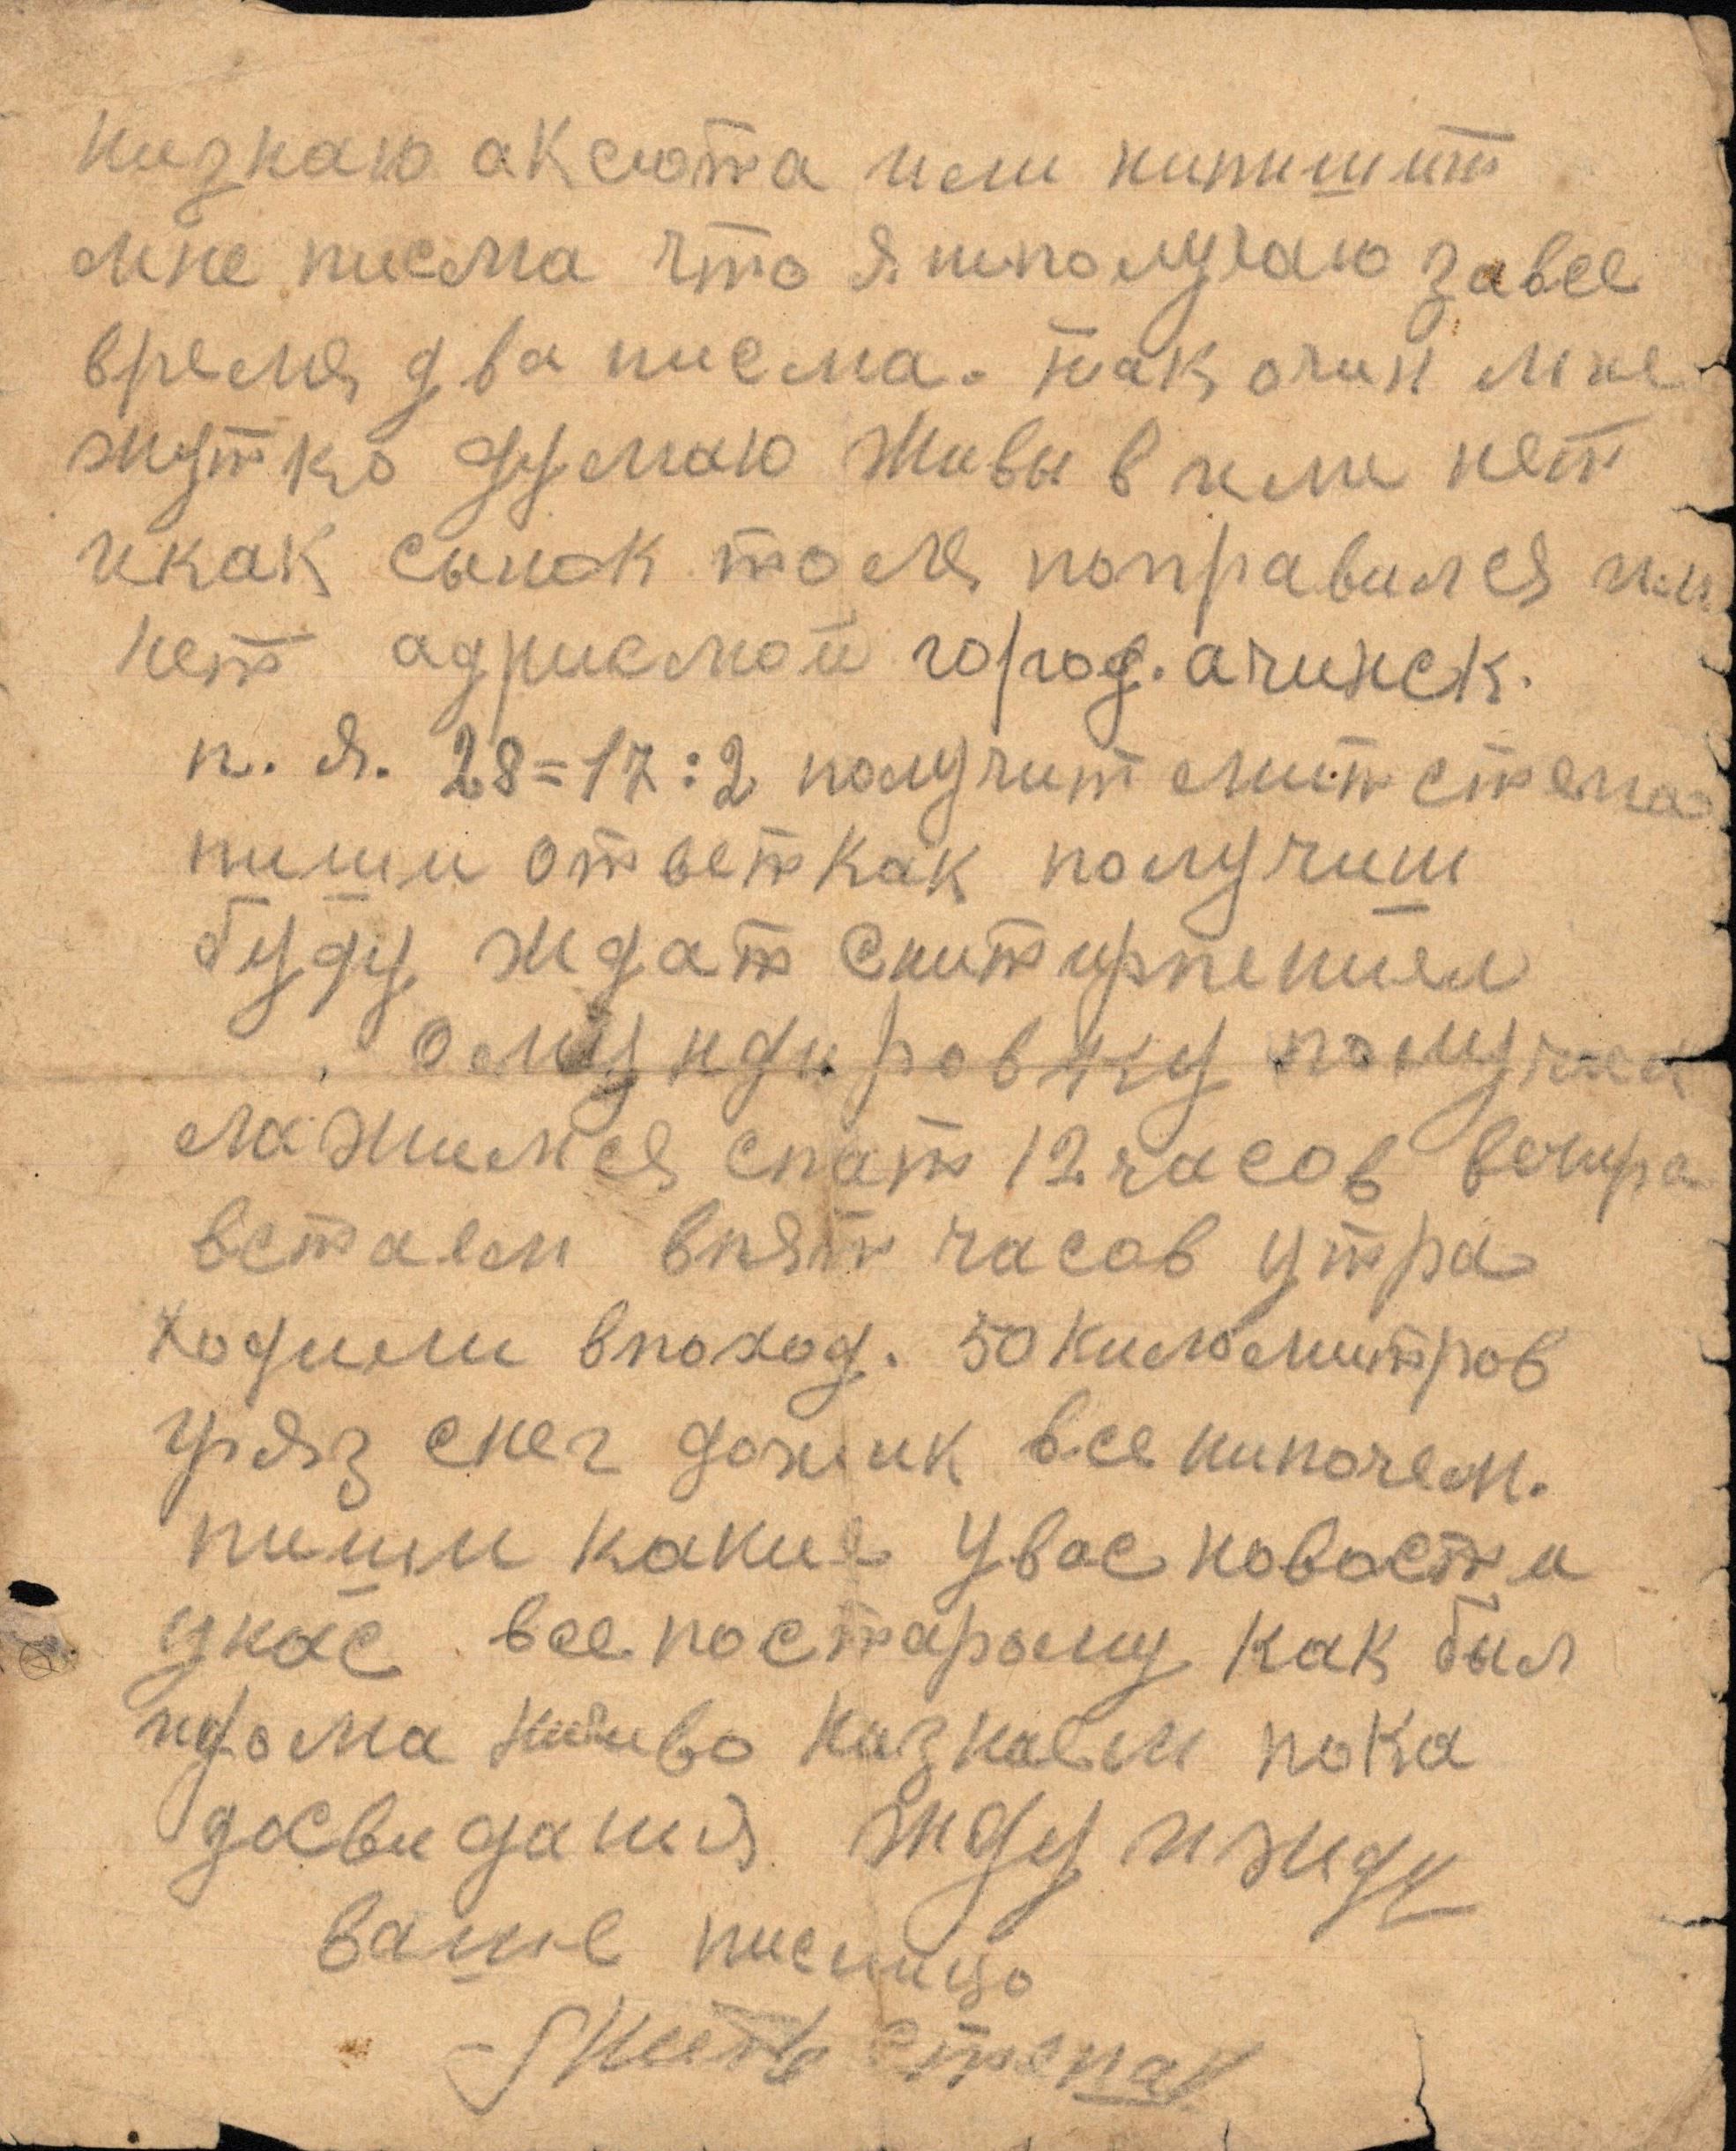 низнаю аксюта или нипишит
мне писма что я ниполучаю завсе
время два писма. так очин мне
жутко думаю живы в или нет
икак сынок толя поправился или
нет адрисмой город. ачинск.
п. я. 28=17:2 получит мит степа
пиши ответкак получиш
буду ждат снитирпением
омундировку получил
лажимся спат 12 часов вечира
встаем впят часов утра
ходили впоход. 50 километров
гряз снег дожик все нипочем.
пиши какие увас новости
унас все постарому как был
идома ничиво низнаем пока
досвидания жду и жду
ваше писмицо
Мить степа